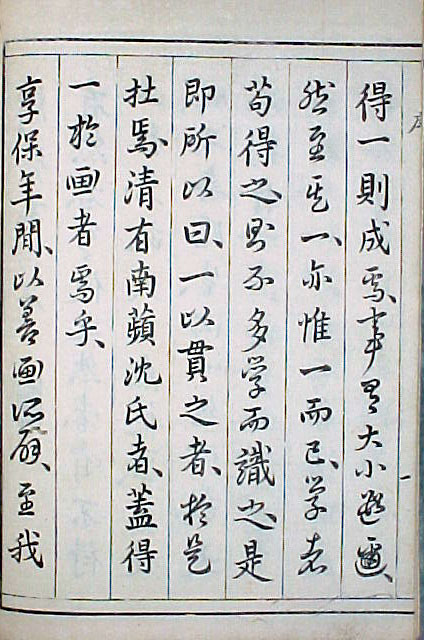 得一則成焉、事有大小遐邇、
然至其一、亦惟一而已、学者
苟得之、則不多学而識之、是
即所以曰、一以貫之者、於是
扗焉、清有南蘋沈氏者、蓋得
一於画者焉乎、
享保年間、以善画辟、至我
一